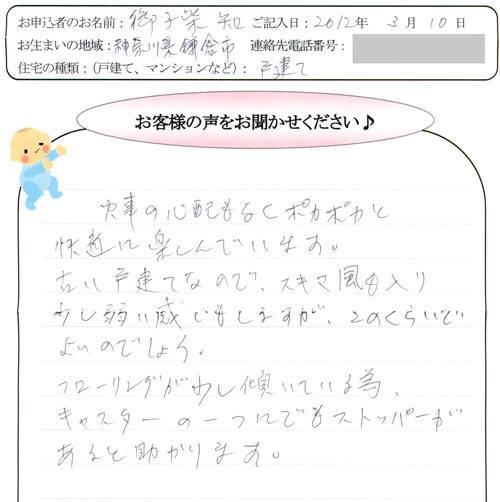 お申込者のお名前：御子柴 知 ご記入日：2012年 3月10日
お住まいの地域：神奈川県鎌倉市 連絡先電話番号：
住宅の種類：（戸建て、マンションなど）：戸建て
お客様の声をお聞かせください♪
火事の心配もなくポカポカと
快適に楽しんでいます。
古い戸建てなので、スキマ風も入り
少し弱い感じもしますが、このくらいで
よいのでしょう。
フローリングが少し傾いている為、
キャスターの一つにでもストッパーが
あると助かります。